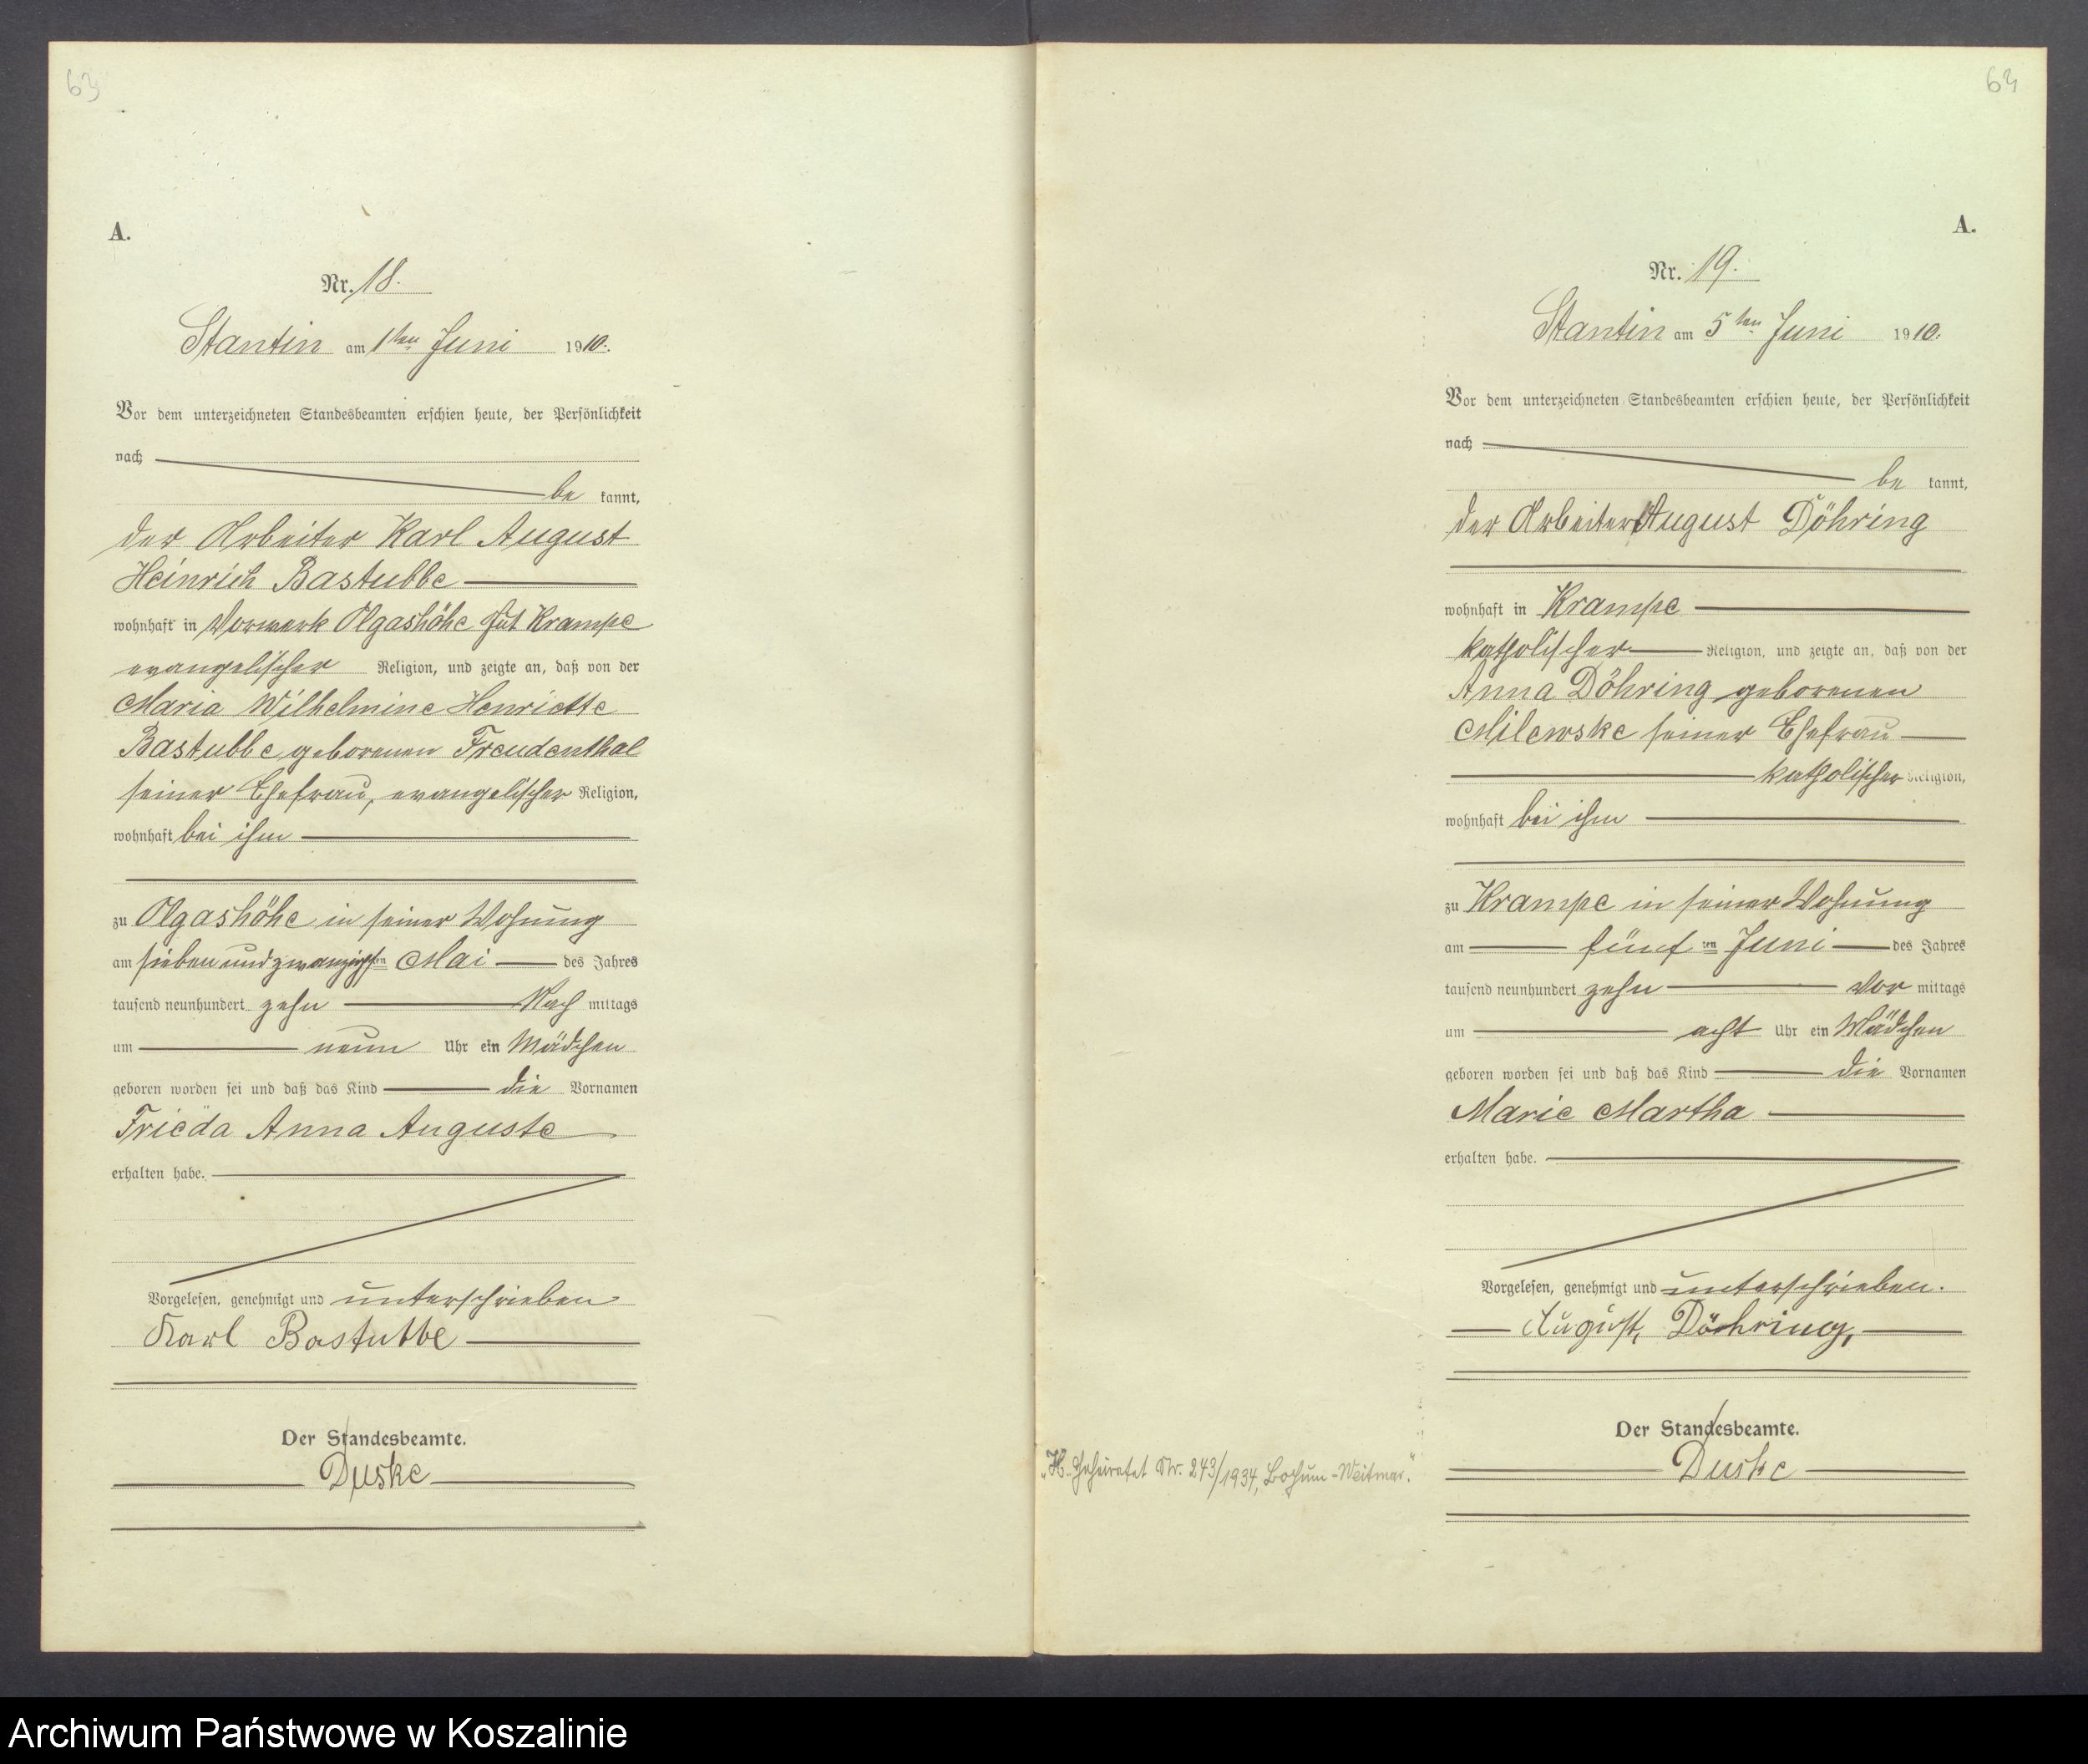 63
A.
Nr. 18.
Stantin am 1ten Juni 1910.
Vor dem unterzeichneten Standesbeamten erschien heute, der Persönlichkeit
nach
be kannt,
der Arbeiter Karl August
Heinrich Bastubbe
wohnhaft in Vorwerk Olgashöhe Gut Krampe
evangelischer Religion, und zeigte an, daß von der
Maria Wilhelmine Henriette
Bastubbe geborenen Freudenthal
seiner Ehefrau, evangelischer Religion,
wohnhaft bei ihm
zu Olgashöhe in seiner Wohnung
am siebenundzwanzigsten Mai des Jahres
tausend neunhundert zehn Nach mittags
um neun Uhr ein Mädchen
geboren worden sei und daß das Kind die Vornamen
Frieda Anna Auguste
erhalten habe.
Vorgelesen, genehmigt und unterschrieben
Karl Bastubbe
Der Standesbeamte.
Duske
64
A.
Nr. 19.
Stantin am 5ten Juni 1910.
Vor dem unterzeichneten Standesbeamten erschien heute, der Persönlichkeit
nach
be kannt,
der Arbeiter August Döhring
wohnhaft in Krampe
katholischer Religion, und zeigte an, daß von der
Anna Döhring geborenen
Milewske seiner Ehefrau
katholischer Religion,
wohnhaft bei ihm
zu Krampe in seiner Wohnung
am fünf ten Juni des Jahres
tausend neunhundert zehn Vor mittags
um acht Uhr ein Mädchen
geboren worden sei und daß das Kind die Vornamen
Marie Martha
erhalten habe.
Vorgelesen, genehmigt und unterschrieben.
August, Döhring,
Der Standesbeamte.
Duske
„H. Geheiratet Nr. 243/1934, Bochum-Weitmar."
Archiwum Państwowe w Koszalinie